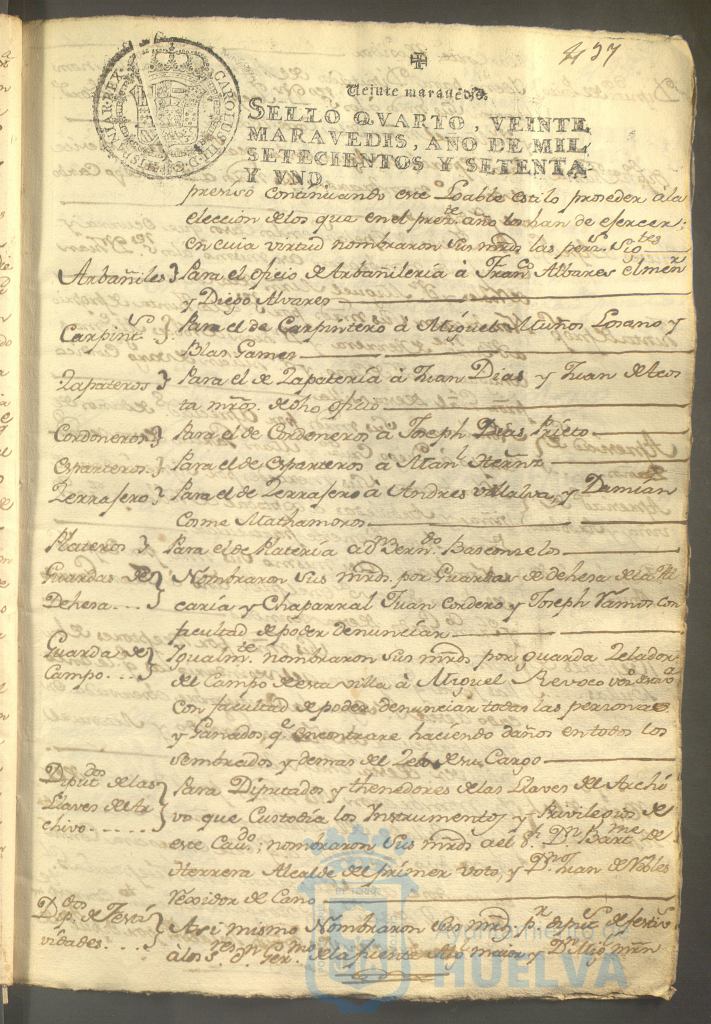 437
Veinte maravedis
SELLO QVARTO, VEINTE
MARAVEDIS, AÑO DE MIL
SETECIENTOS Y SETENTA
Y VNO.
CAROLUS III D.G. HISPANIAR REX
presiso continuando este Loable estilo proseder a la
eleccion de los que en el pres.te año han de ejercer:
en cuia virtud nombraron sus mrds las pers.s sig.tes
Arbañiles } Para el oficio de Arbañileria à Fran.co Albares el men.r
y Diego Alvares
Carpint.s } Para el de Carpintero à Miguel Muños Losano y
Blas Gamez
Zapateros } Para el de Zapateria à Juan Dias y Juan de Acos
ta mros. de dho ofisio
Cordoneros } Para el de Cordoneros à Joseph Dias Prieto
Esparteros } Para el de Esparteros à Man.l
Zerrajero } Para el de Zerrajero à Andres Villalva, y Damian
Cosme Mathamoros
Plateros } Para el de Plateria a d.n Bern.do Basconselos
Guardas de
Dehesa . . . } Nombraron sus mrds. por Guardas de dehesa de la Al
caria y Chaparral Juan Cordero y Joseph Ramos con
facultad de poder denunciar
Guarda de
Campo . . . } Igualm.te nombraron sus mrds por guarda Zelador
del Campo de esta villa à Miguel Revoco
con facultad de poder denunciar todas las personas
y Ganados, q.e encontrare haciendo daños en todos los
sembrados y demas del Zelo de su Cargo
Diput.dos de las
Llaves del Ar
chivo . . . . . } Para Diputados y thenedores de las Llaves del Archi
vo que Custodia los Instrumentos y Privilegios de
este Cav.do; nombraron sus mrds a el S.r D.n Bart.me de
Herrera Alcalde de primer voto, y D.n Juan de Robles
Rexidor de Cano
Dip.dos de Festi
vidades . . . . } Asi mismo Nombraron sus mrds p.r diput.s de festiv.s
à los S.res D.n Ger.mo de la fuente Alg.l maior y D.n
HUELVA